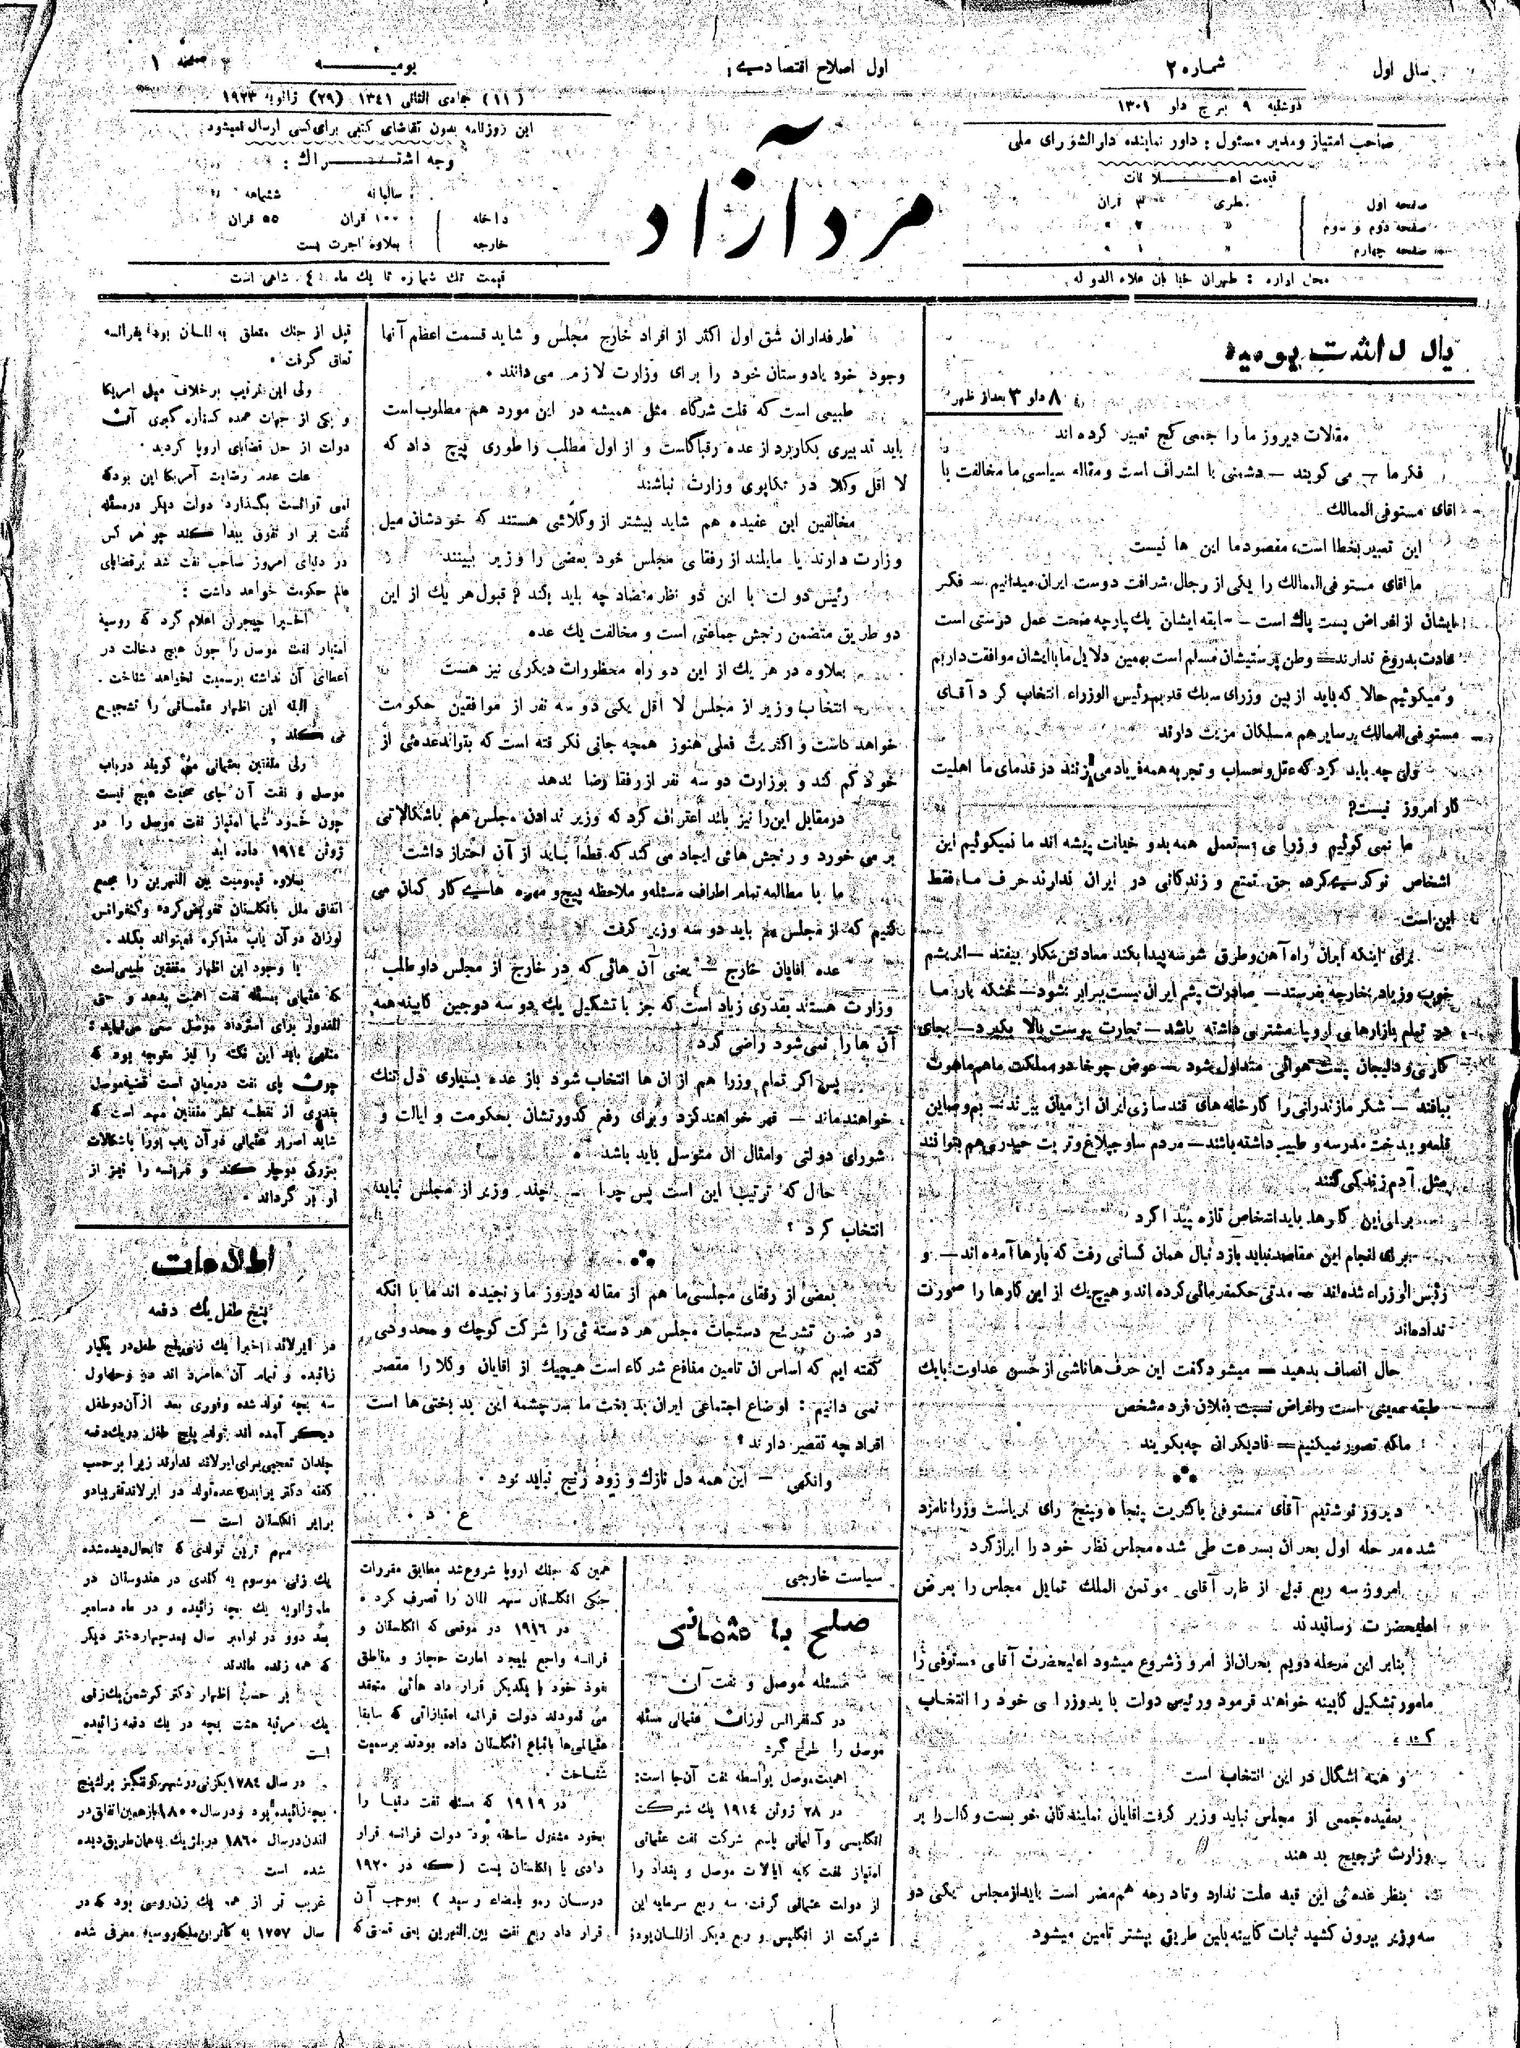 سال اول
شماره ۲
اول اصلاح اقتصادی
یومیه
صفحه ۱
دوشنبه ۹ برج دلو ۱۳۰۱
(۱۱) جمادی الثانی ۱۳۴۱ (۲۹) ژانویه ۱۹۲۳
صاحب امتیاز و مدیر مسئول : داور نماینده دارالشورای ملی
قیمت اعلانات
صفحه اول سطری ۳ قران
صفحه دوم و سوم » ۲ »
صفحه چهارم » ۱ »
محل اداره : طهران خیابان علاء الدوله
مرد آزاد
این روزنامه بدون تقاضای کتبی برای کسی ارسال نمیشود
وجه اشتراك :
سالیانه ششماهه
داخله ۱۰۰ قران ۵۵ قران
خارجه بعلاوه اجرت پست
قیمت تك شماره تا یك ماه ۴۰ شاهی است
یاد داشت یومیه
۸ دلو ۳ بعد از ظهر
مقالات دیروز ما را جمعی کج تعبیر کرده اند
فکر ما — می گویند — دشمنی با اشراف است و مقاله سیاسی ما مخالفت با
اقای مستوفی الممالك
این تعبیر بخطا است، مقصود ما این ها نیست
ما اقای مستوفی الممالك را یکی از رجال شرافت دوست ایران میدانیم — فکر
ایشان از اغراض پست پاك است — سابقه ایشان یك پارچه صحت عمل درستی است
عادت بدروغ ندارند — وطن پرستیشان مسلم است بهمین دلایل ما با ایشان موافقت داریم
و میگوئیم حالا که باید از بین وزرای سبك قدیم رئیس الوزراء انتخاب کرد آقای
مستوفی الممالك بر سایر هم مسلکان مزیت دارند
ولی چه باید کرد که عقل و حساب و تجربه همه فریاد می زنند در قدمای ما اهلیت
کار امروز نیست؟
ما نمی گوئیم وزرای مستعمل همه بد و خیانت پیشه اند ما نمیگوئیم این
اشخاص نوکر سی کرده حق تمتع و زندگانی در ایران ندارند حرف ما فقط
این است
برای اینکه ایران راه آهن و طرق شوسه پیدا بکند معادنش بکار بیفتد — ابریشم
خوب و زیاد بخارجه بفرستد — صادرات پشم ایران بیست برابر بشود — خشکه بار ما
در تمام بازارهای اروپا مشتری داشته باشد — تجارت پوست بالا بگیرد — بجای
گاری و دلیجان پست هوائی متداول بشود — عوض چوخا در مملکت ما هم ماهوت
ببافند — شکر مازندرانی را کارخانه های قند سازی ایران از میان ببرند —
مدرسه و طبیب داشته باشند — مردم ساوجبلاغ و تربت حیدری هم بتوانند
مثل آدم زندگی کنند
برای این کارها باید اشخاص تازه پیدا کرد
برای انجام این مقاصد نباید باز دنبال همان کسانی رفت که بارها آمده اند — و
رئیس الوزراء شده اند — مدتی حکمفرمائی کرده اند و هیچ یك از این کارها را صورت
نداده اند
حال انصاف بدهید — میشود گفت این حرف ها ناشی از حس عداوت با یك
طبقه معینی است و اغراض نسبت بفلان فرد مشخص
ما که تصور نمیکنیم — تا دیگران چه بگویند
دیروز نوشتیم آقای مستوفی باکثریت پنجاه و پنج رای بریاست وزرا نامزد
شده مرحله اول بحران بسرعت طی شده مجلس نظر خود را ابراز کرد
امروز سه ربع قبل از ظهر آقای موتمن الملك تمایل مجلس را بعرض
اعلیحضرت رسانیدند
بنابر این مرحله دویم بحران از امروز شروع میشود اعلیحضرت آقای مستوفی را
مامور تشکیل کابینه خواهند فرمود و رئیس دولت باید وزرای خود را انتخاب
کند
و همه اشکال در این انتخاب است
بعقیده جمعی از مجلس نباید وزیر گرفت اقایان نمایندگانی خوبست وکالت را بر
وزارت ترجیح بدهند
بنظر عده ئی این قید علت ندارد و تا درجه هم مضر است باید از مجلس یکی دو
سه وزیر بیرون کشید ثبات کابینه باین طریق بیشتر تامین میشود
طرفداران شق اول اکثر از افراد خارج مجلس و شاید قسمت اعظم آنها
وجود خود یا دوستان خود را برای وزارت لازم می دانند .
طبیعی است که قلت شرکاء مثل همیشه در این مورد هم مطلوب است
باید تدبیری بکار برد از عده رقبا کاست و از اول مطلب را طوری پیچ داد که
لا اقل وکلا در تکاپوی وزارت نباشند
مخالفین این عقیده هم شاید بیشتر از وکلائی هستند که خودشان میل
وزارت دارند یا مایلند از رفقای مجلس خود بعضی را وزیر ببینند
رئیس دولت با این دو نظر متضاد چه باید بکند ؟ قبول هر یك از این
دو طریق متضمن رنجش جماعتی است و مخالفت یك عده
بعلاوه در هر یك از این دو راه محظورات دیگری نیز هست
انتخاب وزیر از مجلس لا اقل یکی دو سه نفر از موافقین حکومت
خواهد کاست و اکثریت فعلی هنوز همچه جانی نگرفته است که بتواند عده ئی از
خود کم کند و بوزارت دو سه نفر از رفقا رضا ندهد
در مقابل این را نیز باید اعتراف کرد که وزیر ندادن مجلس هم باشکالاتی
بر می خورد و رنجش هائی ایجاد می کند که قطعا باید از آن احتراز داشت
ما با مطالعه تمام اطراف مسئله و ملاحظه پیچ و مهره های کار گمان می
کنیم که از مجلس هم باید دو سه وزیر گرفت
عده اقایان خارج — یعنی آن هائی که در خارج از مجلس داوطلب
وزارت هستند بقدری زیاد است که جز با تشکیل یك دو سه دوجین کابینه همه
آن ها را نمی شود راضی کرد
پس اگر تمام وزرا هم از ان ها انتخاب شود باز عده بسیاری دل تنك
خواهند ماند — قهر خواهند کرد و برای رفع کدورتشان بحکومت و ایالت و
شورای دولتی و امثال ان متوسل باید باشد .
حال که ترتیب این است پس چرا — چند وزیر از مجلس نباید
انتخاب کرد ؟
بعضی از رفقای مجلسی ما هم از مقاله دیروز ما رنجیده اند ما با انکه
در ضمن تشریح دستجات مجلس هر دسته ئی را شرکت کوچك و محدودی
گفته ایم که اساس ان تامین منافع شرکاء است هیچیك از اقایان وکلا را مقصر
نمی دانیم : اوضاع اجتماعی ایران بدبخت ما سرچشمه این بدبختی ها است
افراد چه تقصیر دارند ؟
وانگهی — این همه دل نازك و زود رنج نباید بود .
ع . د .
سیاست خارجی
صلح با عثمانی
مسئله موصل و نفت آن
در کنفرانس لوزان عثمانی مسئله
موصل را طرح کرد
اهمیت موصل بواسطه نفت آن جا است :
در ۲۸ ژوئن ۱۹۱۴ یك شرکت
انگلیسی و آلمانی باسم شرکت نفت عثمانی
امتیاز نفت کلیه ایالات موصل و بغداد را
از دولت عثمانی گرفت . سه ربع سرمایه این
شرکت از انگلیس و ربع دیگر از المان بود ؛
همین که جنك اروپا شروع شد مطابق مقررات
جنگی انگلستان سهم المان را تصرف کرد .
در ۱۹۱۶ در موقعی که انگلستان و
فرانسه راجع بایجاد امارت حجاز و مناطق
نفوذ خود با یکدیگر قرار دادهائی منعقد
می نمودند دولت فرانسه امتیازاتی که سابقا
عثمانی ها باتباع انگلستان داده بودند برسمیت
شناخت .
در ۱۹۱۹ که مسئله نفت دنیا را
بخود مشغول ساخته بود دولت فرانسه قرار
دادی با انگلستان بست ( که در ۱۹۲۰
در سان رمو بامضاء رسید ) بموجب آن
قرار داد ربع نفت بین النهرین یعنی قسمتی که
قبل از جنك متعلق به المان بود بفرانسه
تعلق گرفت .
ولی این ترتیب بر خلاف میل امریکا
و یکی از جهات عمده کناره گیری آن
دولت از حل قضایای اروپا گردید .
علت عدم رضایت آمریکا این بود که
نمی توانست بگذارد دولت دیگر در مسئله
نفت بر او تفوق پیدا کند چو هر کس
در دنیای امروز صاحب نفت شد بر قضایای
عالم حکومت خواهد داشت :
اخیرا چیچرین اعلام کرد که روسیه
امتیاز نفت موصل را چون هیچ دخالت در
اعطای آن نداشته برسمیت نخواهد شناخت .
البته این اظهار عثمانی را تشجیع
می کند .
ولی متفقین بعثمانی می گویند در باب
موصل و نفت آن جای صحبت هیچ نیست
چون خود شما امتیاز نفت موصل را در
ژوئن ۱۹۱۴ داده اید
بعلاوه قیمومیت بین النهرین را مجمع
اتفاق ملل بانگلستان تفویض کرده و کنفرانس
لوزان در آن باب مذاکره نمیتواند بکند .
با وجود این اظهار متفقین طبیعی است
که عثمانی بمسئله نفت اهمیت بدهد و حتی
المقدور برای استرداد موصل سعی می نماید :
منتهی باید این نکته را نیز متوجه بود که
چون پای نفت درمیان است قضیه موصل
بقدری از نقطه نظر متفقین مهم است که
شاید اصرار عثمانی در آن باب او را باشکالات
بزرگی دوچار کند و فرانسه را نیز از
او بر گرداند .
اطلاعات
پنج طفل یك دفعه
در ایرلاند اخیرا یك زنی پنج طفل در یکبار
زائیده و تمام آن ها مرده اند در وحله اول
سه بچه تولد شده و فوری بعد از آن دو طفل
دیگر آمده اند تولد پنج طفل در یك دفعه
چندان تعجبی برای ایرلاند ندارند زیرا بر حسب
گفته دکتر عده تولد در ایرلاند تقریبا دو
برابر انگلستان است —
مهم ترین تولدی که تا بحال دیده شده
یك زنی موسوم به کلدی در هندوستان در
ماه ژانویه یك بچه زائیده و در ماه دسامبر
بعد دو و در نوامبر سال بعد چهار دختر دیگر
که همه زنده ماندند
بر حسب اظهار دکتر یك زنی
یك مرتبه هشت بچه در یك دفعه زائیده
است
در سال ۱۷۸۴ یکزنی در شهر پنج
بچه زائیده بود و در سال ۱۸۰۰ باز همین اتفاق در
لندن در سال ۱۸۶۰ در بلژیك به همان طریق دیده
شده است
غریب تر از همه یك زن روسی بود که در
سال ۱۷۵۷ به کاترین ملکه روسیه معرفی شده